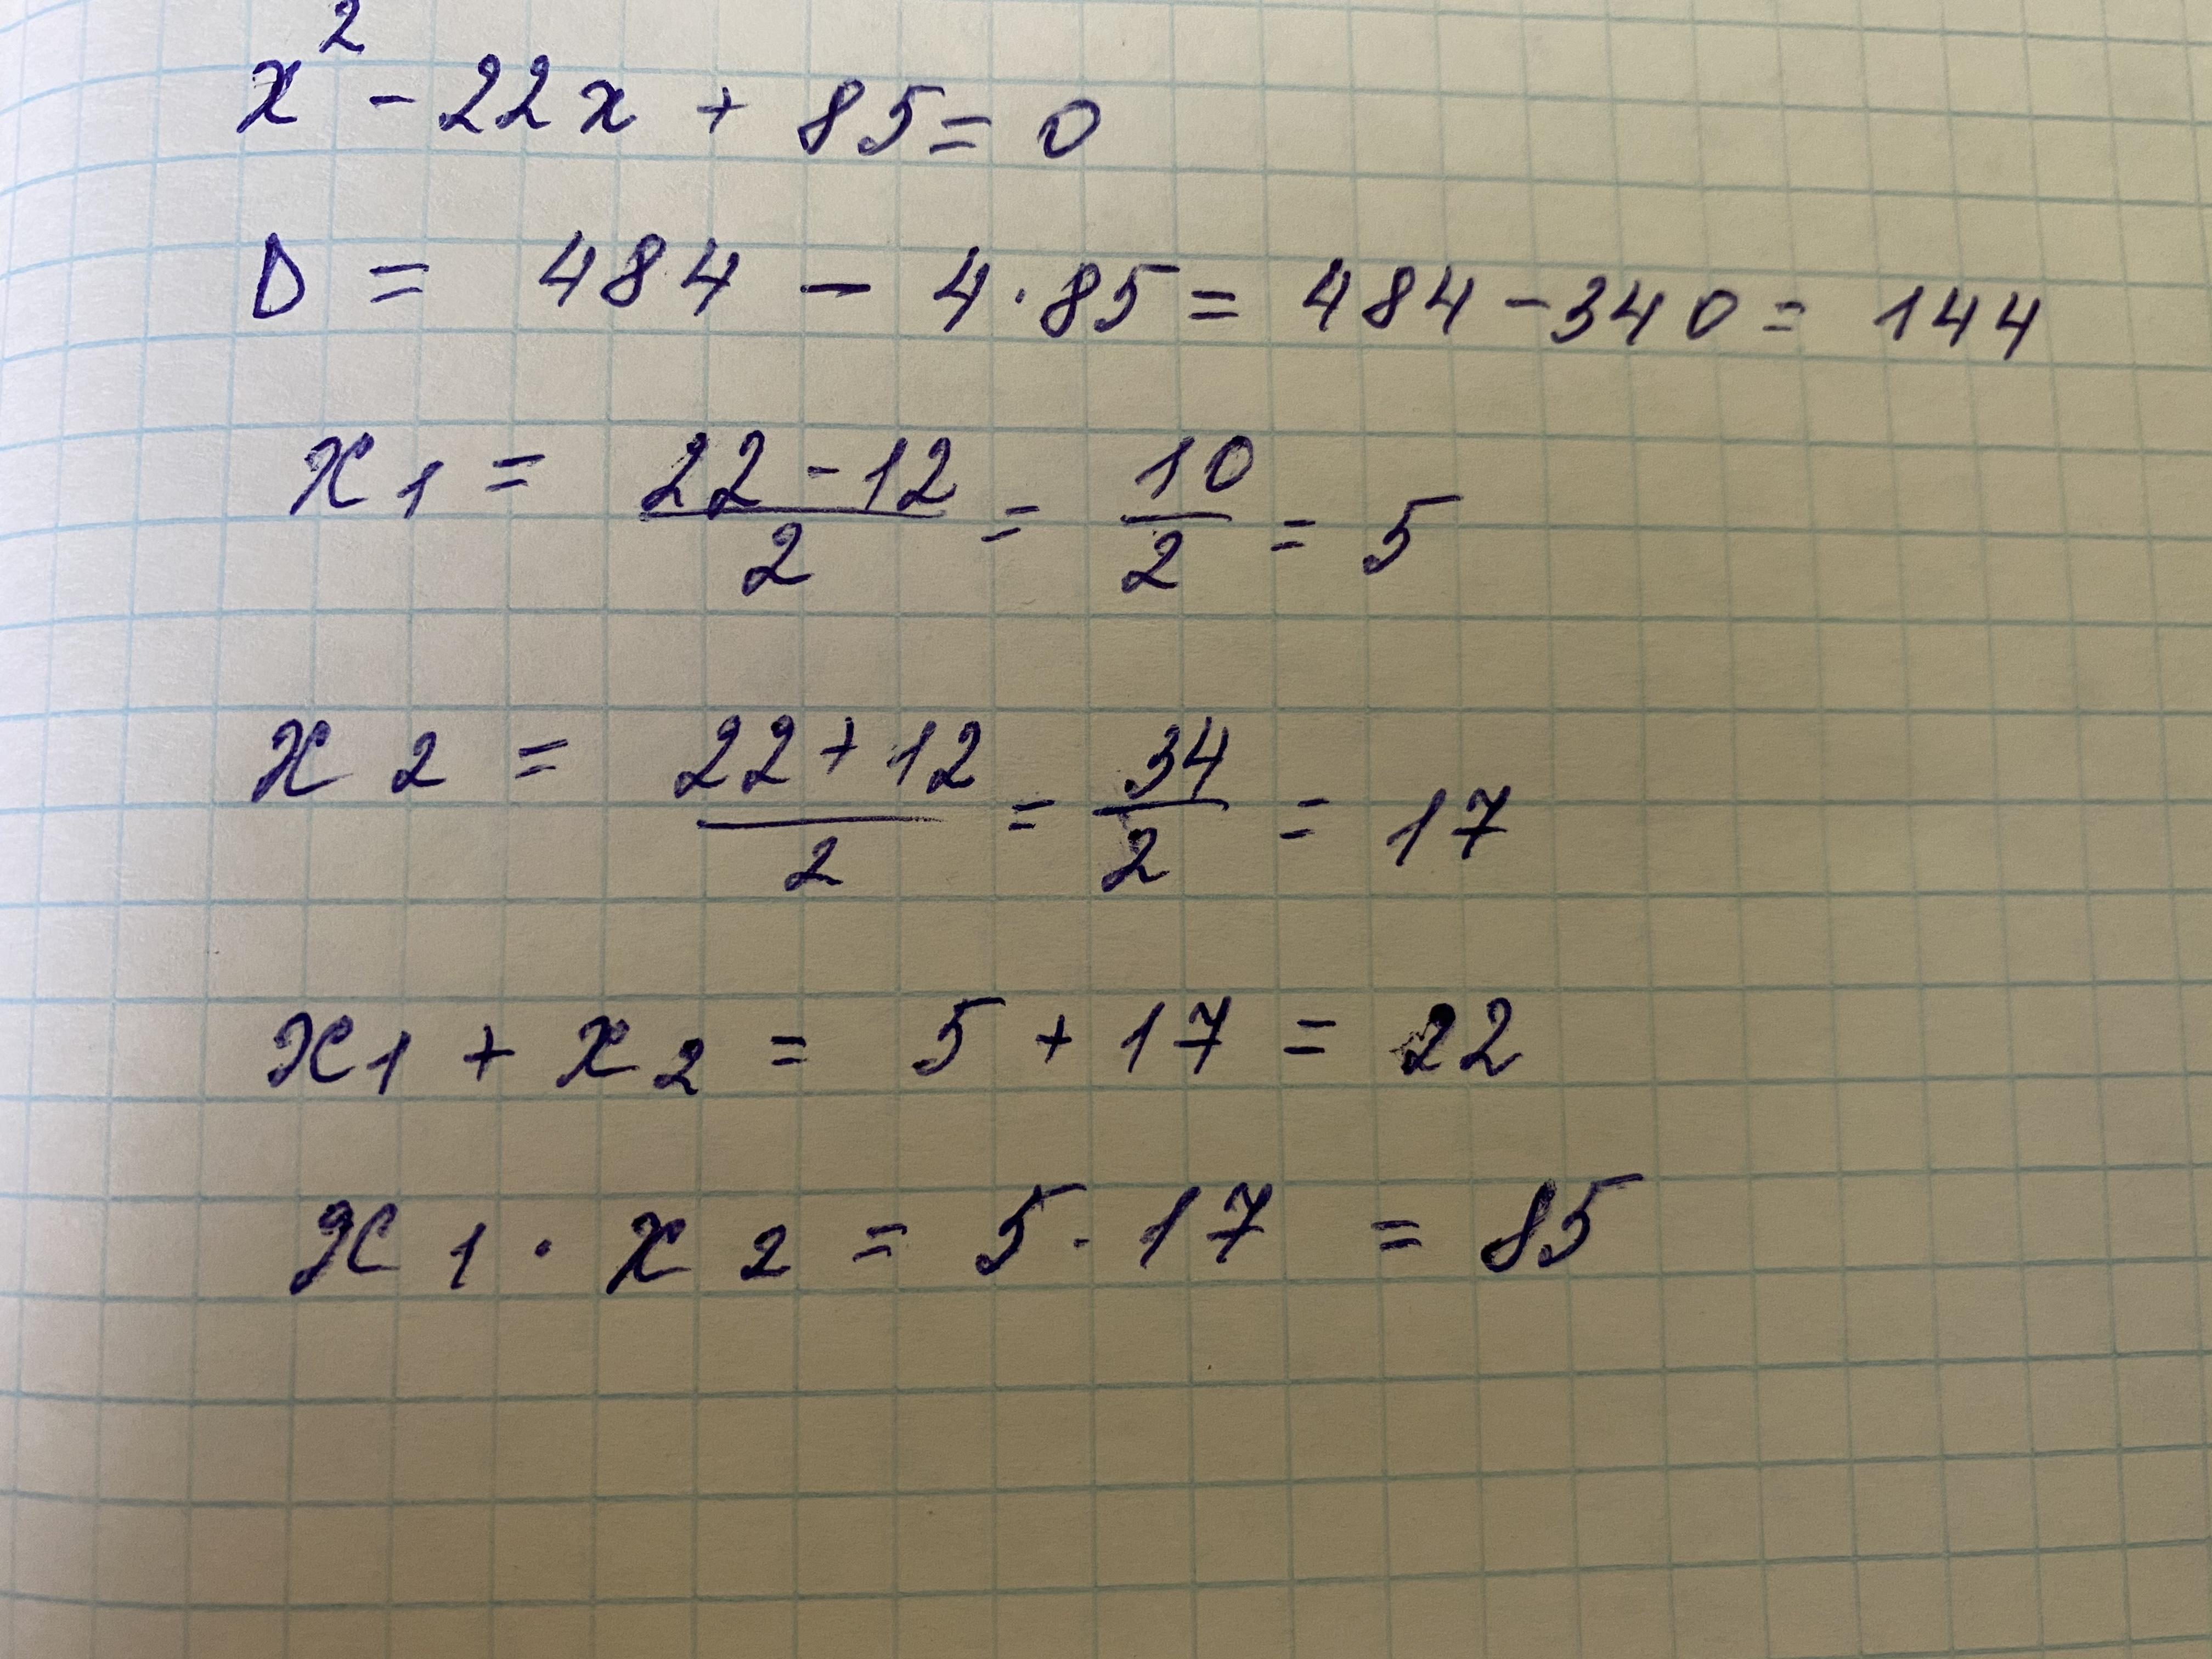 x² - 22x + 85 = 0
D = 484 - 4·85 = 484 - 340 = 144
x1 = (22 - 12)/2 = 10/2 = 5
x2 = (22 + 12)/2 = 34/2 = 17
x1 + x2 = 5 + 17 = 22
x1 · x2 = 5 · 17 = 85